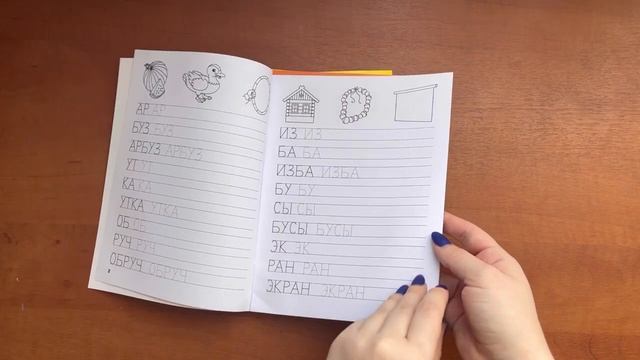 АР АР
БУЗ БУЗ
АРБУЗ АРБУЗ
УТ УТ
КА КА
УТКА УТКА
ОБ ОБ
РУЧ РУЧ
ОБРУЧ ОБРУЧ
8
ИЗ ИЗ
БА БА
ИЗБА ИЗБА
БУ БУ
СЫ СЫ
БУСЫ БУСЫ
ЭК ЭК
РАН РАН
ЭКРАН ЭКРАН